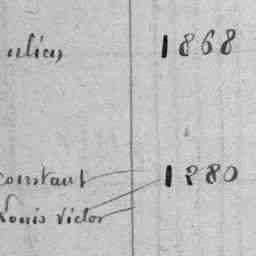 ulien 1868
constant 1280
Louis Victor